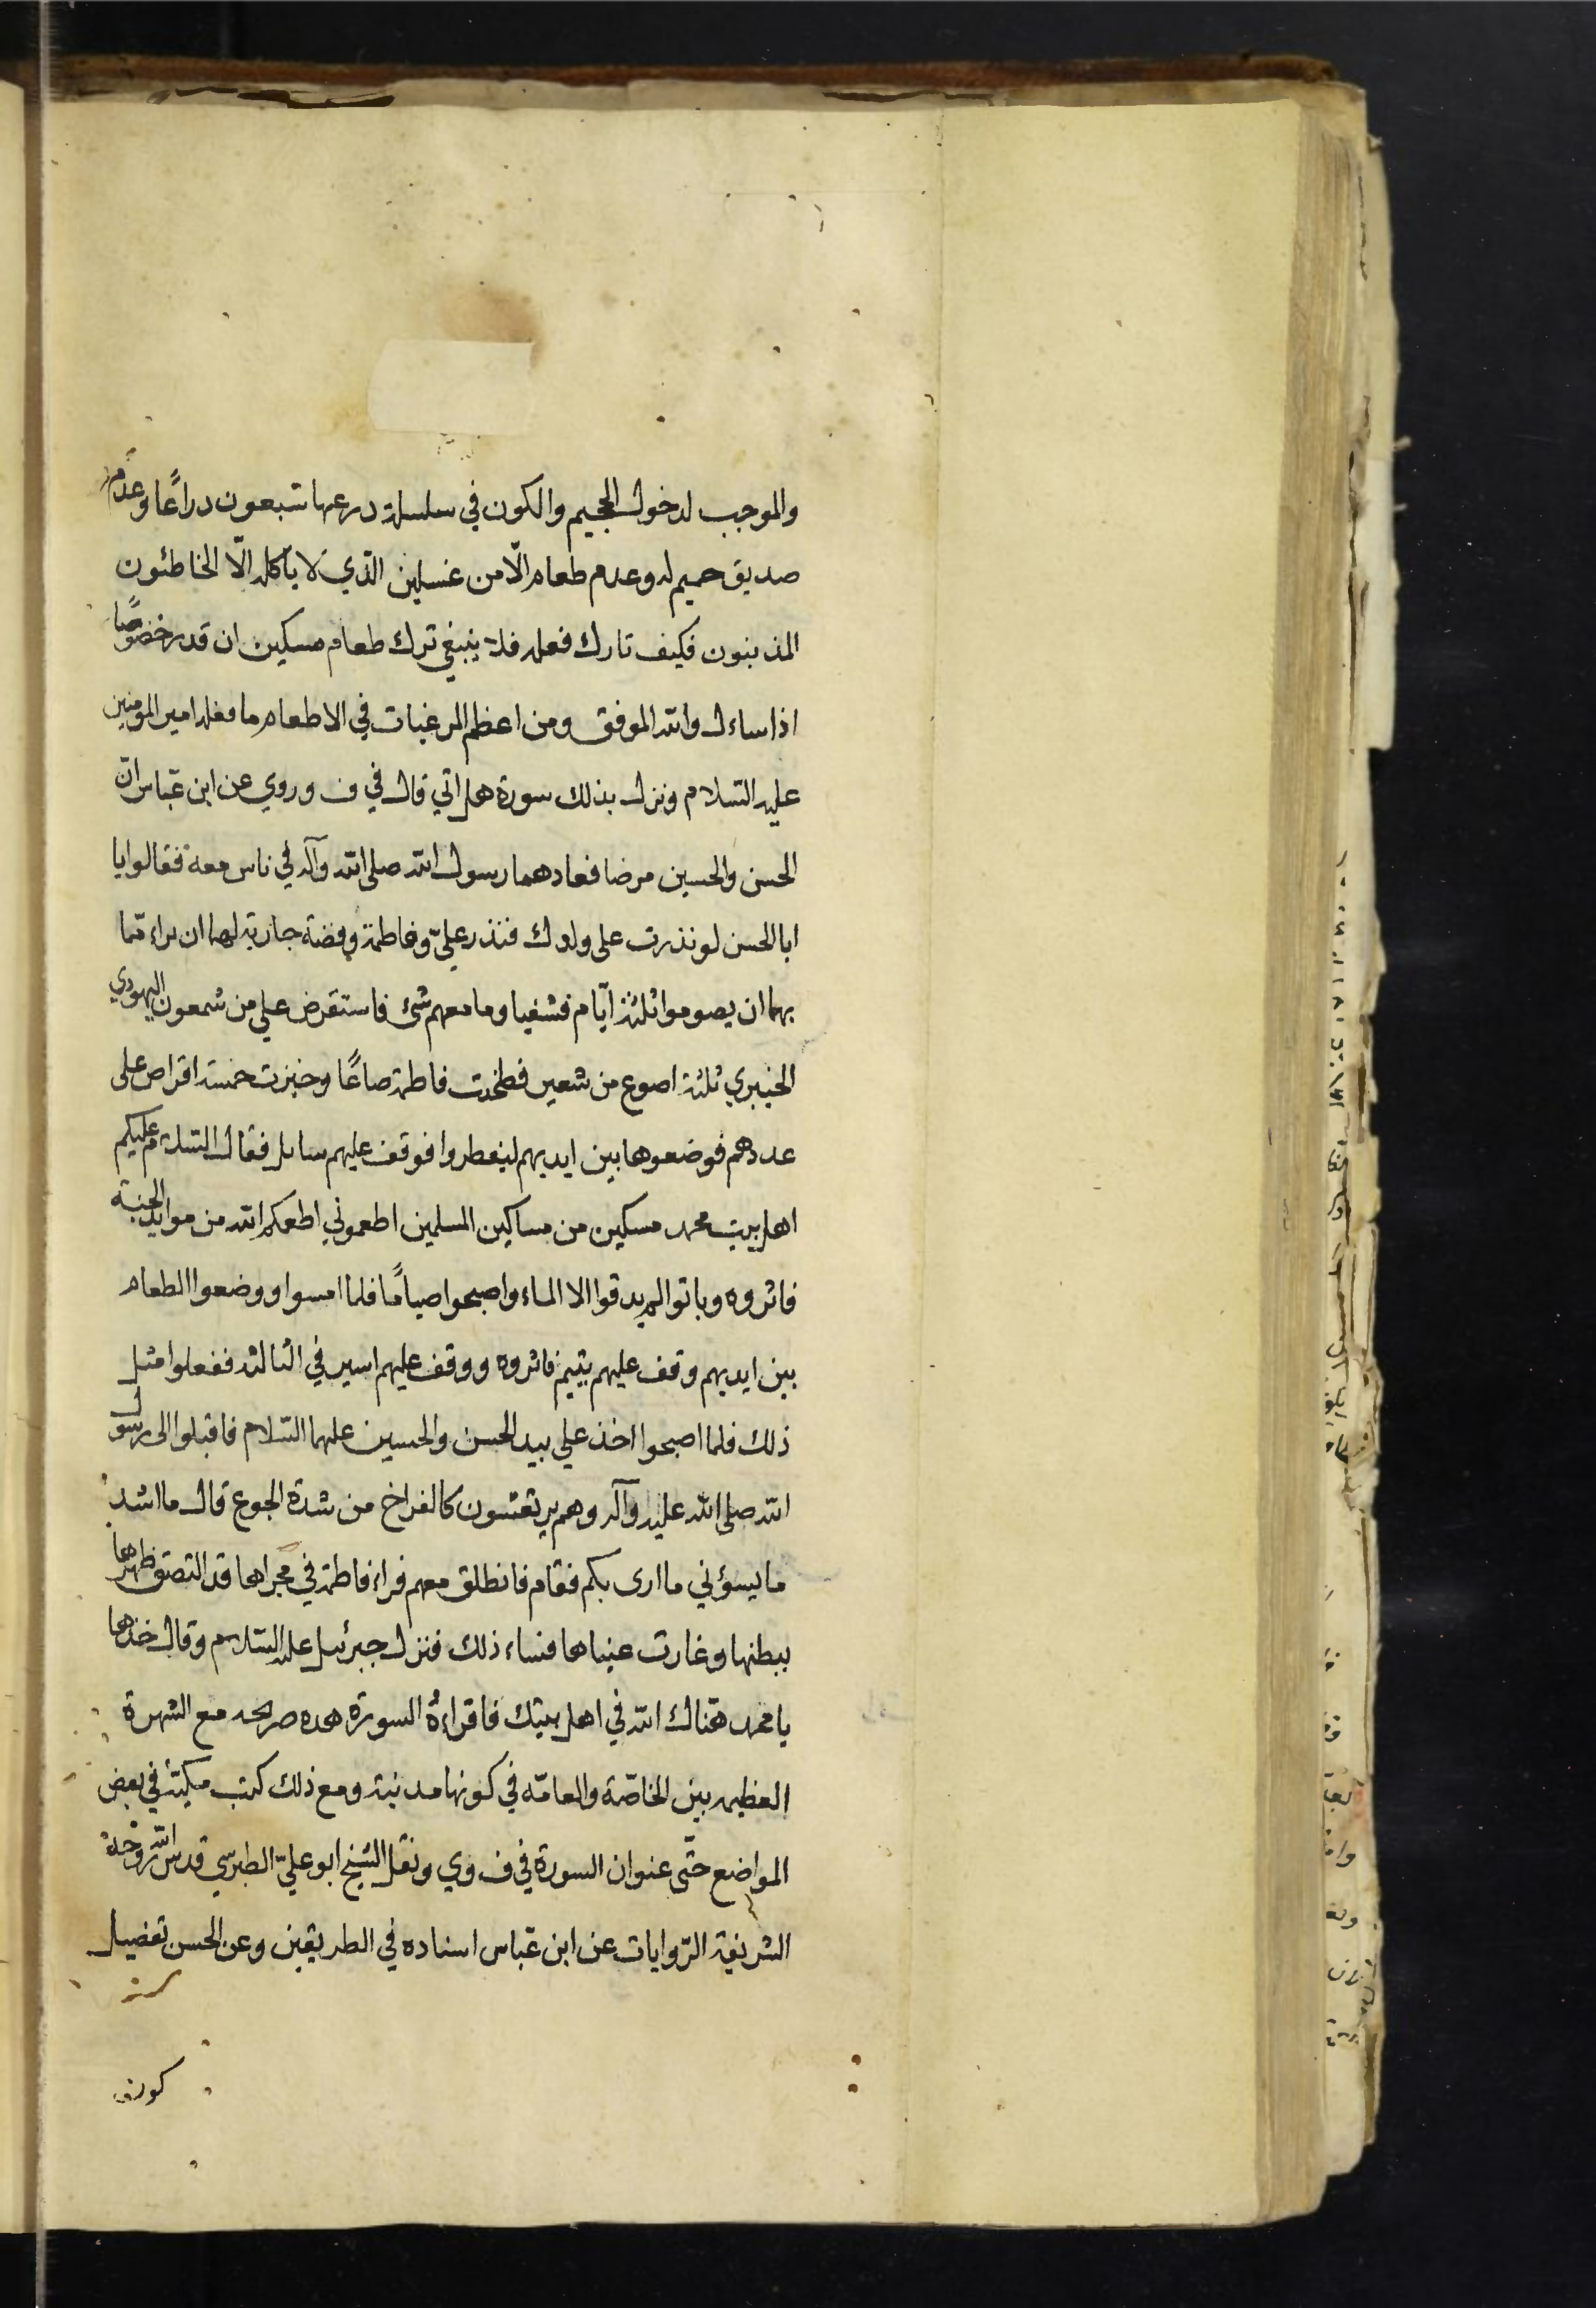 والموجب لدخول الجحيم والكون في سلسلة درعها سبعون دراعًا وعدم
صديق حميم له وعدم طعام الّا من غسلين الذي لا يأكله الّا الخاطئون
المذنبون فكيف تارك فعله فلا ينبغي ترك طعام مسكين ان قدر خصوصًا
اذا ساءل والله الموفق ومن اعظم المرغبات في الاطعام ما فعله امير المؤمنين
عليه السّلام ونزل بذلك سورة هل اتي قال في ف وروي عن ابن عبّاس انّ
الحسن والحسين مرضا فعادهما رسول الله صلى الله وآله في ناس معه فقالوا يا
ابا الحسن لو نذرت على ولدك فنذر عليّ وفاطمة وفضة جارية لهما ان براء ممّا
بهما ان يصوموا ثلثة ايّام فشفيا وما معهم شئ فاستقرض علي من شمعون اليهودي
الخيبري ثلثة اصوع من شعير فطخنت فاطمة صاعًا وخبزت خمسة اقراص على
عددهم فوضعوها بين ايديهم ليفطروا فوقف عليهم سايل فقال السّلام عليكم
اهل بيت محمد مسكين من مساكين المسلمين اطعموني اطعمكم الله من موايد الجنّة
فاثروه وباتوا لم يدقوا الا الماء واصبحوا صيامًا فلما امسوا ووضعوا الطعام
بين ايديهم وقف عليهم يتيم فاثروه ووقف عليهم اسير في الثالثة ففعلوا مثل
ذلك فلما اصبحوا اخذ علي بيد الحسن والحسين عليهما السّلام فاقبلوا الى رسول
الله صلى الله عليه وآله وهم يرتعشون كالفراخ من شدة الجوع قال ما اشد
ما يسؤني ما ارى بكم فقام فانطلق معهم فراء فاطمة في محرابها قد التصق ظهرها
ببطنها وغارت عيناها فساء ذلك فنزل جبرئيل عليه السّلام وقال خذها
يا محمد هنّاك الله في اهل بيتك فاقراءه السورة هده صريحه مع الشهرة
العظيمه بين الخاصّة والعامّه في كونها مدنية ومع ذلك كتب مكيّة في بعض
المواضع حتّى عنوان السورة في ف وي ونقل الشيخ ابو عليّ الطبرسي قدس الله روحه
الشريفة الرّوايات عن ابن عبّاس اسناده في الطريقين وعن الحسن تفضيل
كون